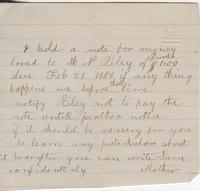 I hold a note for money
loned to M P Riley of
$1.00
due Feb 26 1886 if any thing
happens me before
that time
notify Riley not to pay the
note untill further notice
if it should be necessary for you
to learn any particulars about
it you can write Sam
confidentialy Mother